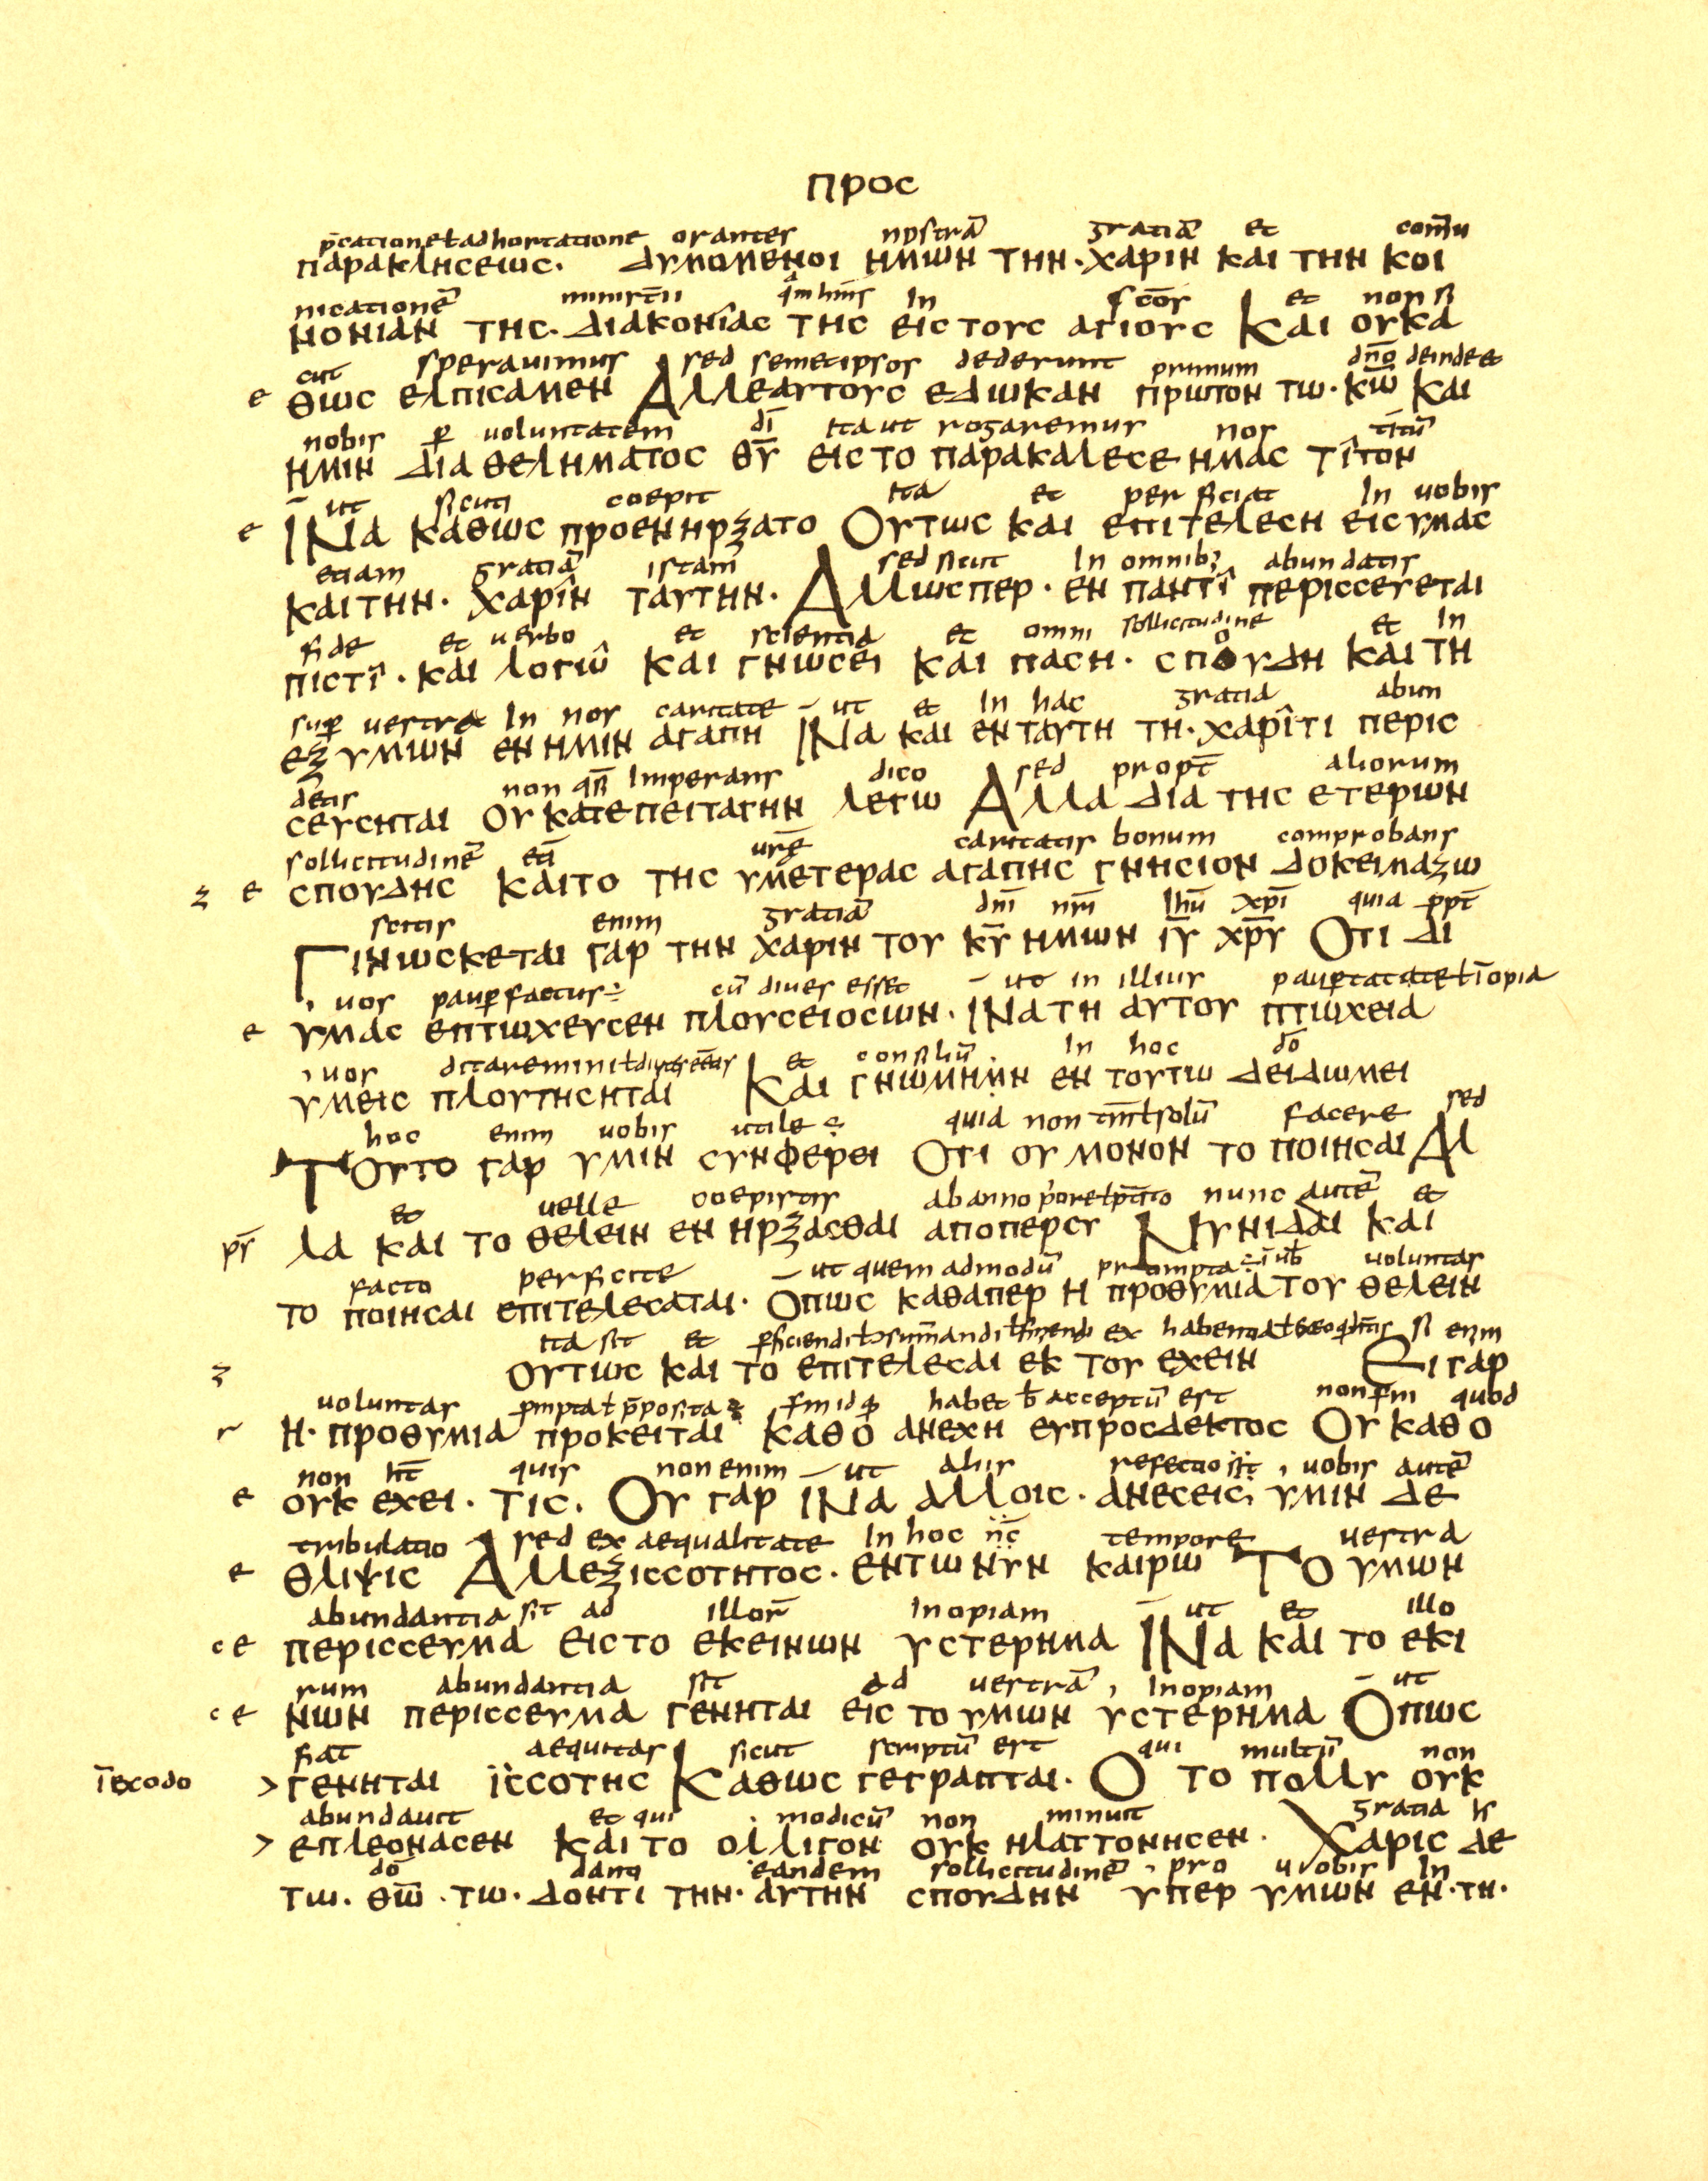 προς
p̄cationeł adhortatione orantes nostrā gratiā et com̄u
παρακλησεως· δυμωμενοι ημων την·χαριν και την κοι
nicationē ministīi in sc̄os et non si
νονιαν της· διακονîας της εις τους αγιους Και ουκα
cut sperauimus sed semetipsos dederunt primum dn̄o deinde et
ε θως ελπισαμεν Αλλεαυτους εδωκαν πρωτον τω·κ̄ω̄ και
nobis p̱ uoluntatem dī ita ut rogaremus nos titū
ημιν δια θεληματος θ̄ῡ εις το παρακαλεσε ημας τîτον
ut sicuti coepit ita et perficiat in uobis
ε ΙΝα καθως προενηρξατο Ουτως και επιτελεση εις υμας
etiam gratiā istam sed sicut in omnib; abundatis
και την· χαρîν ταυτην· Αλλωσπερ· εν παντî περισσευεται
fide et uerbo et scientia et omni sollicitudine et in
πιστî· και λογω̂ και γνωσει και παση· σπουδη και τη
sup̱ uestra in nos caritate ut et in hac gratia abun
εξ υμων εν ημιν αγαπη ΙΝα και εν ταυτη τη·χαρîτι περις
detis non qsī imperans dico sed propt̄ aliorum
σευσηται Ου κατεπειταγην λεγω Αλλα δια της ετερων
sollicitudinē etī urē caritatis bonum comprobans
ζ ε σπουδης και το της υμετερας αγαπης γνησιον δοκειμαζω
scitis enim gratiā dnī nr̄i ihū xp̄i quia p̱pt̄
Γινωσκεται γαρ την χαριν του κ̄ῡ ημων ῑῡ χ̄ρ̄ῡ Οτι δι
uos paup̱ factus÷ cū diues esset ut in illius paup̱tate ł īopia
ε υμας επτωχευσεν πλουσειοσων· ΙΝα τη αυτου πτωχεια
uos ditaremini ł et consiliū in hoc dō
υμεις πλουτησηται Και γνωμημν εν τουτω δειδωμει
hoc enim uobis utile ÷ quia non tm̄ ł solū facere sed
Τουτο γαρ υμιν συνφερει Οτι ου μονον το ποιησαι Αλ
et uelle coepistis ab anno p̄ore ł nunc autē et
p̄r λα και το θελειν εν ηρξασθαι αποπερσυ Νυνιδαι και
facto perficite ut quem admodū prompta uoluntas
το ποιησαι επιτελεσαται· Οπως καθαπερ η προθυμια του θελειν
ita sit et p̱ficiendi ł ex si enim
ζ ουτως και το επιτελεσαι εκ του εχειν Ει γαρ
uoluntas p̱mpta ł p̄posita habet acceptū est non quod
r η· προθυμια προκειται καθο ανεχη ευπροσδεκτος Ου καθο
non ht̄ quis non enim ut aliis refectio sit uobis autē
ε ουκ εχει· τις· Ου γαρ ΙΝα αλλοις· ανεσεις υμιν δε
tribulatio sed ex aequalitate in hoc n̄c̄ tempore uestra
ε θλιψις Αλλεξισσοτητος· εντωνυν καιρω Το υμων
abundantia sit ad illor̄ inopiam ut et illo
c ε περισσευμα εις το εκεινων υστερημα ΙΝα και το εκι
rum abundantia sit ad uestrā inopiam ut
c ε νων περισσευμα γενηται εις το υμων υστερημα Οπως
fiat aequitas sicut scriptū est qui multū non
īexodo > γενηται ϊσσοτης Καθως γεγραπται· Ο το πολλυ ουκ
abundauit et qui modicū non minuit gratia
> επλεονασεν και το ολλιγον ουκ ηλαττονησεν· Χαρις δε
dō eandem sollicitudinē pro uobis in
τω· θ̄ω̄ ·τω· δοντι την· αυτην σπουδην υπερ υμων εν·τη·